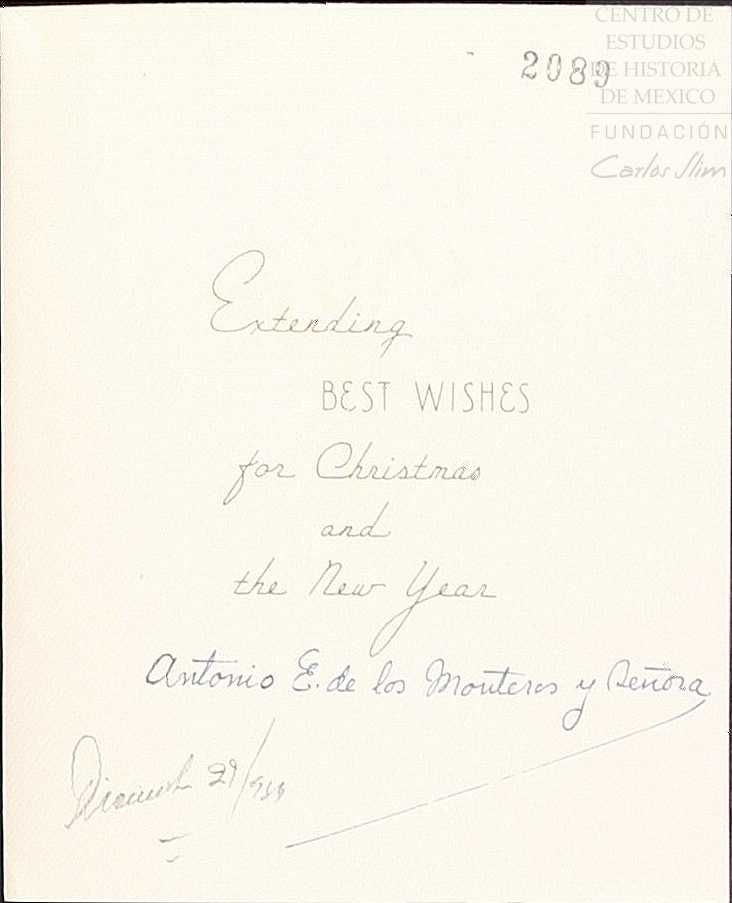 CENTRO DE
ESTUDIOS
DE HISTORIA
DE MEXICO
FUNDACIÓN
Carlos Slim
2089
Extending
BEST WISHES
for Christmas
and
the New Year
Antonio E. de los Monteros y Señora
29/